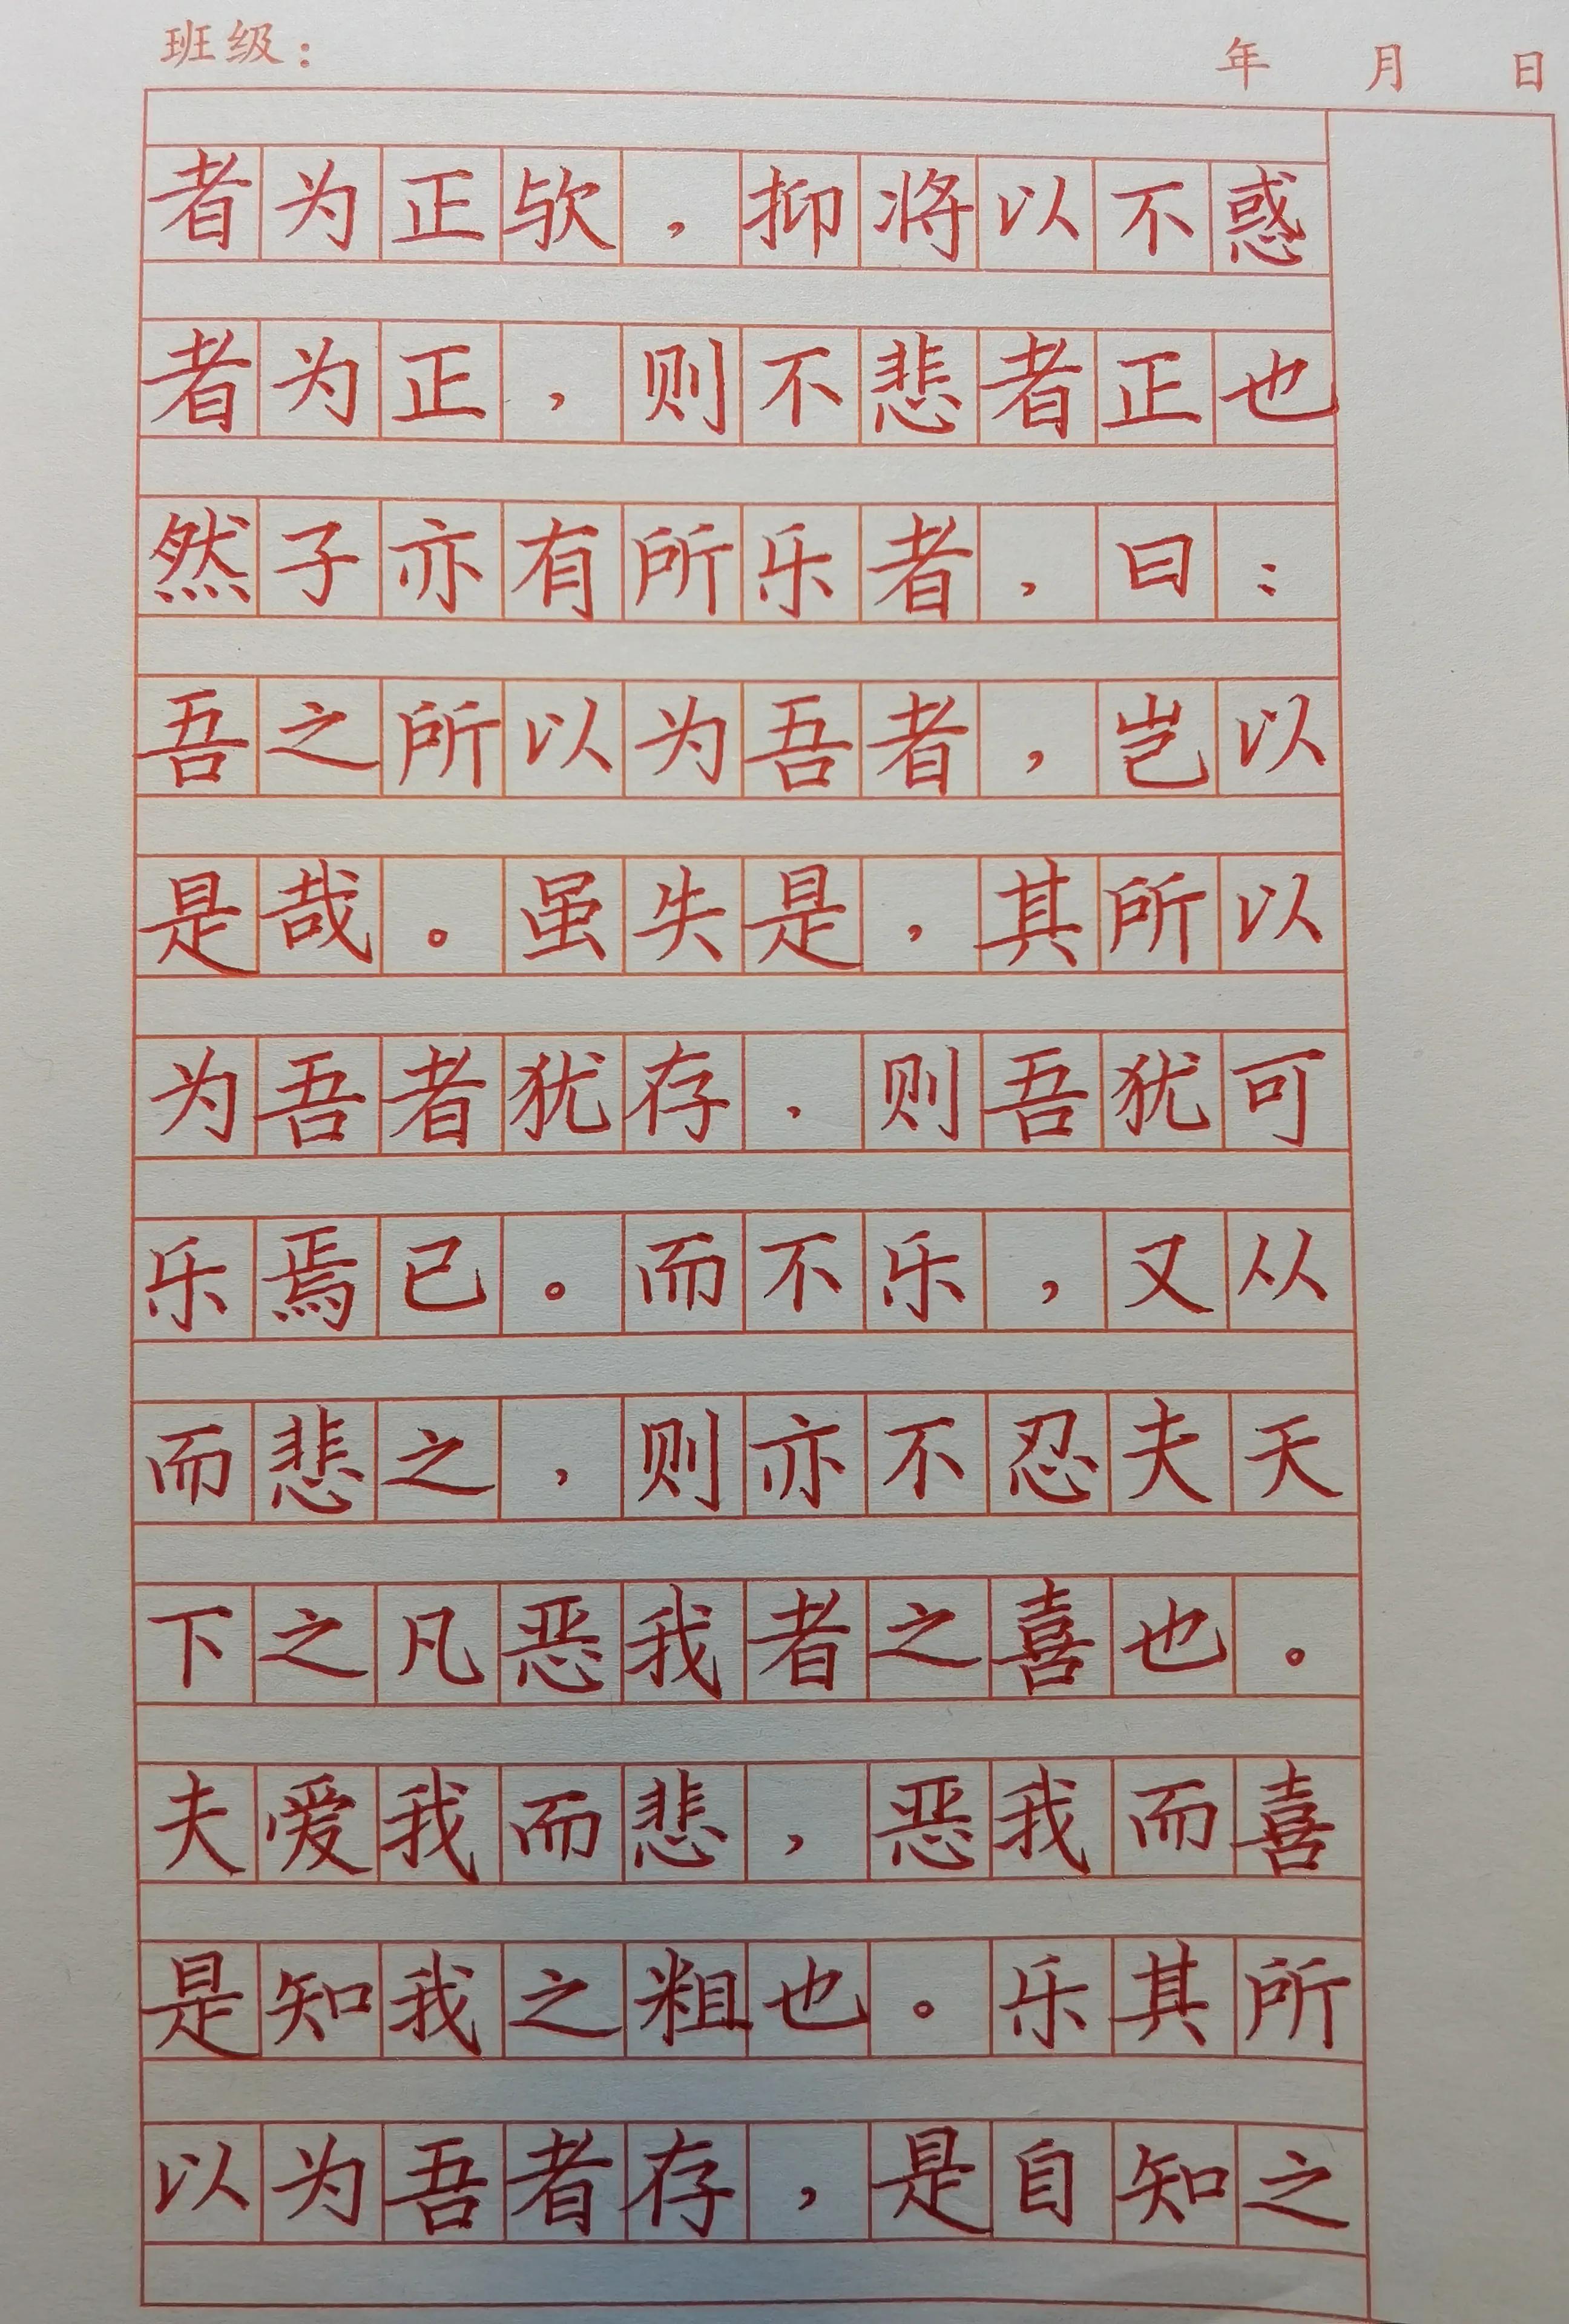 班级：
年 月 日
者为正欤，抑将以不惑
者为正，则不悲者正也
然子亦有所乐者，曰：
吾之所以为吾者，岂以
是哉。虽失是，其所以
为吾者犹存，则吾犹可
乐焉已。而不乐，又从
而悲之，则亦不忍夫天
下之凡恶我者之喜也。
夫爱我而悲，恶我而喜
是知我之粗也。乐其所
以为吾者存，是自知之